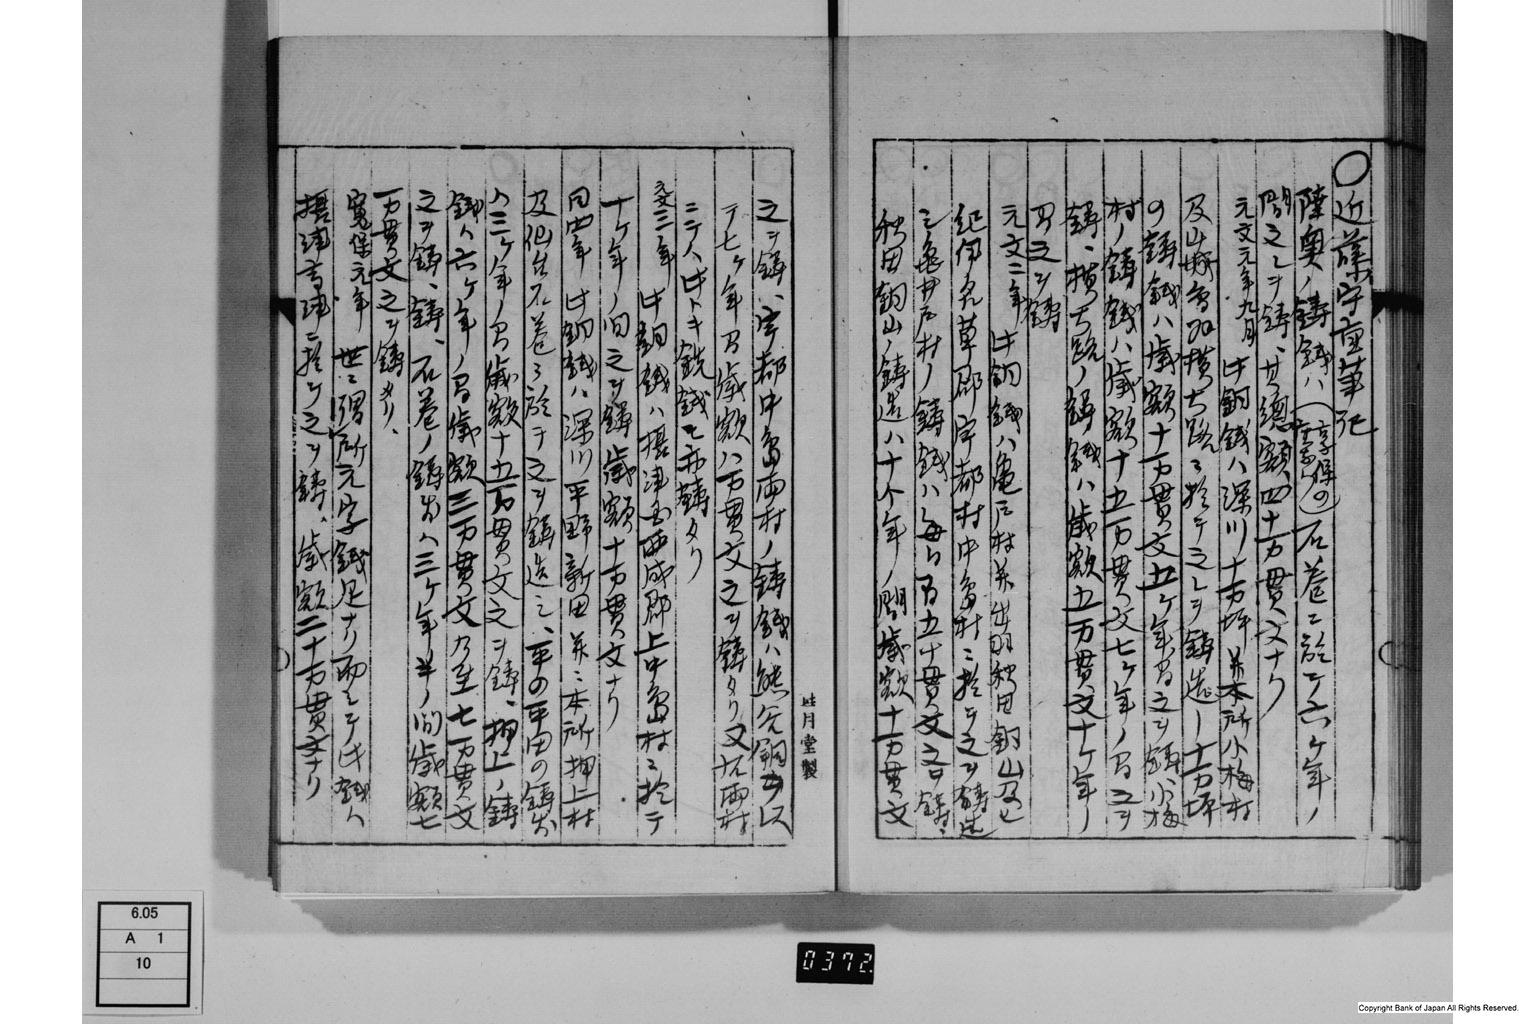 〇近藤守重筆記
陸奥ノ鋳銭ハ(享保の)石巻ニ於テ六ヶ年ノ
間之レヲ鋳、其総額四十万貫文ナリ
元文元年九月 此銅銭ハ深川十万坪并本所小梅村
及山城鳥羽横大路ニ於テ之レヲ鋳造シ十万坪
の鋳銭ハ歳額十万貫文五ヶ年間之ヲ鋳、小梅
村ノ鋳銭ハ歳額十五万貫文七ヶ年ノ間之ヲ
鋳、横大路ノ鋳銭ハ歳額五万貫文十ヶ年ノ
間之ヲ鋳
元文二年 此銅銭ハ亀戸村并出羽秋田銅山及
紀伊名草郡宇都村中島村ニ於テ之ヲ鋳造
シ亀井戸村ノ鋳銭ハ毎日百五十貫文ヲ鋳、
秋田銅山ノ鋳造ハ十ヶ年ノ間歳額十万貫文
之ヲ鋳ハ宇都中島両村ノ鋳銭ハ熊野銅ヲ以
テ七ヶ年間歳額八万貫文之ヲ鋳タリ又右両村
ニテハ此トキ銑銭モ亦鋳タリ
文三年 此銅銭ハ摂津国西成郡上中島村ニ於テ
十ヶ年ノ間之ヲ鋳歳額十万貫文ナリ
同四年 此銅銭ハ深川平野新田并ニ本所押上村
及仙台石巻ニ於テ之ヲ鋳造シ、平の平田の鋳
ハ三ヶ年ノ間歳額十五万貫文之ヲ鋳、押上ノ鋳
銭ハ六ヶ年ノ間歳額三万貫文乃至七万貫文
之ヲ鋳、鋳、石巻ノ鋳ハ三ヶ年半ノ間歳額七
万貫文之ヲ鋳タリ、
寛保元年 世ニ謂所元字銭是ナリ而シテ此銭ハ
摂津高津ニ於テ之ヲ鋳、歳額二十万貫文ナリ
月堂製
6.05
A 1
10
0372
Copyright Bank of Japan All Rights Reserved.